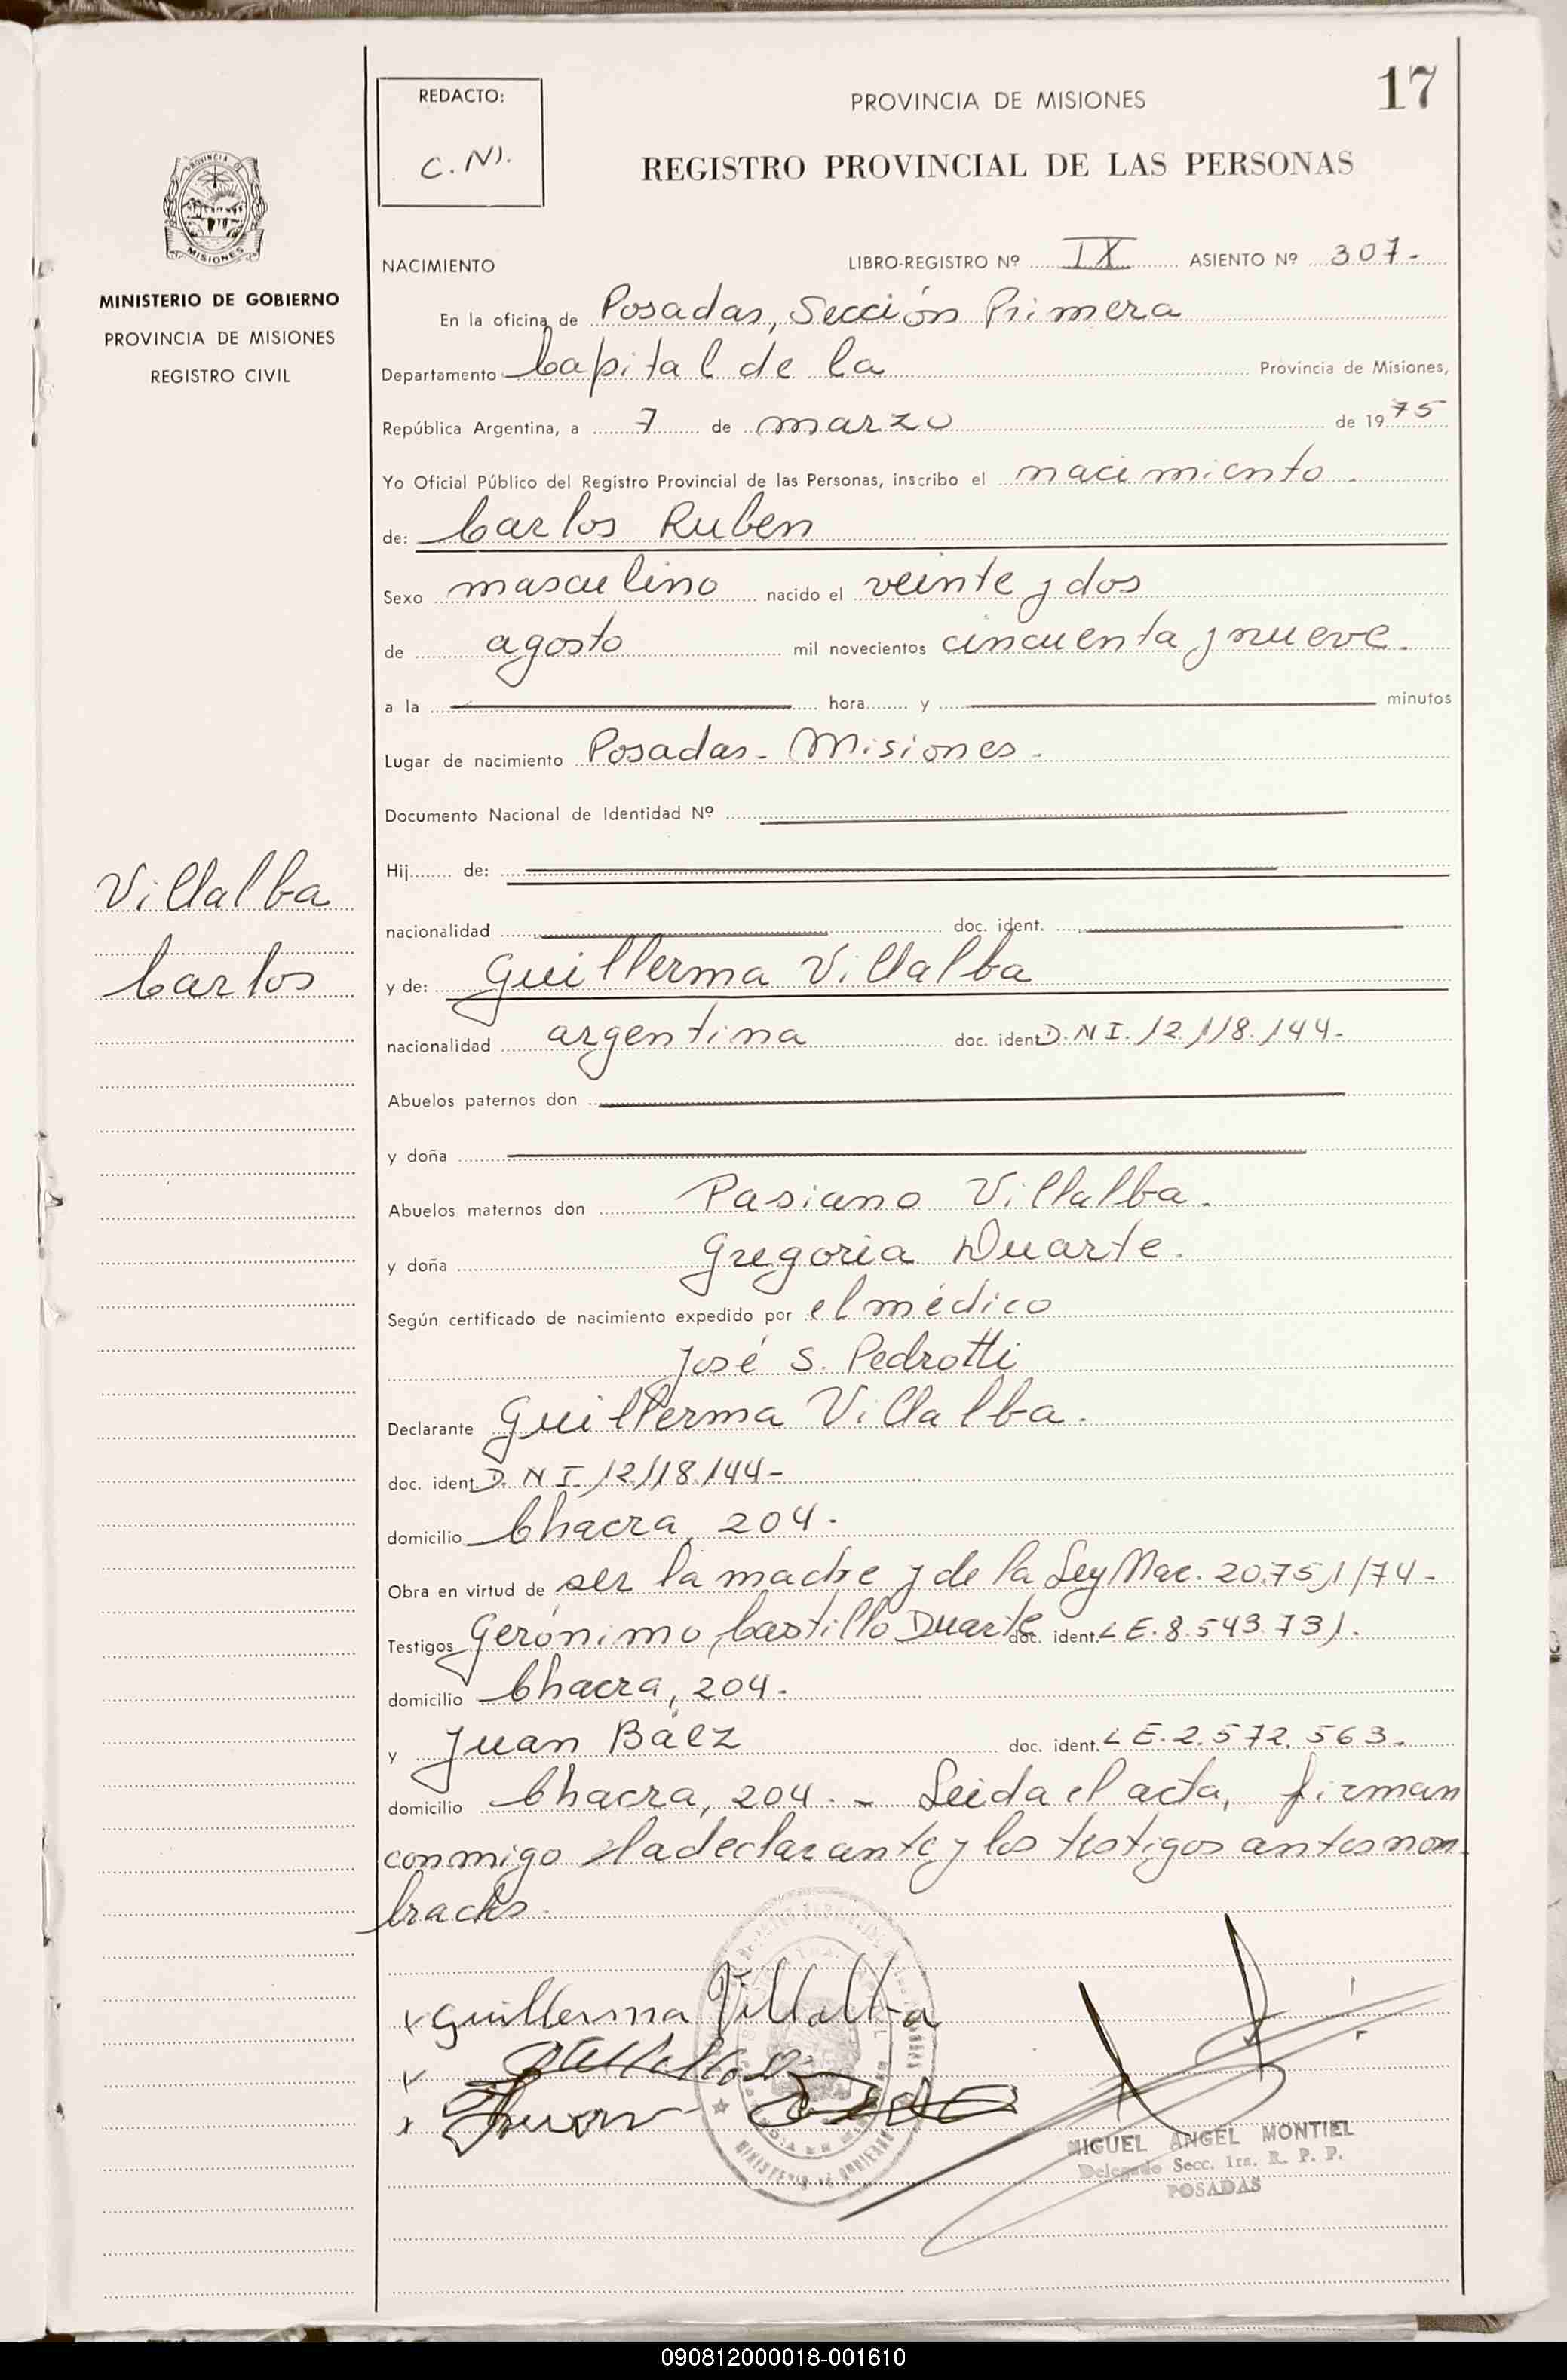 17
REDACTO:
C. N.
PROVINCIA DE MISIONES
REGISTRO PROVINCIAL DE LAS PERSONAS
PROVINCIA DE
MISIONES
MINISTERIO DE GOBIERNO
PROVINCIA DE MISIONES
REGISTRO CIVIL
NACIMIENTO LIBRO-REGISTRO Nº IX ASIENTO Nº 307.-
En la oficina de Posadas, Sección Primera
Departamento Capital de la Provincia de Misiones,
República Argentina, a 7 de marzo de 1975
Yo Oficial Público del Registro Provincial de las Personas, inscribo el nacimiento.
de: Carlos Ruben
Sexo masculino nacido el veinte y dos
de agosto mil novecientos cincuenta y nueve.
a la hora y minutos
Lugar de nacimiento Posadas - Misiones.
Documento Nacional de Identidad Nº
Hij de:
nacionalidad doc. ident.
Villalba
Carlos
y de: Guillerma Villalba
nacionalidad argentina doc. ident D.N I. 12.118.144-
Abuelos paternos don
y doña
Abuelos maternos don Pasiano Villalba.
y doña Gregoria Duarte.
Según certificado de nacimiento expedido por el médico
José S. Pedrotti
Declarante Guillerma Villalba.
doc. ident. D. N I. 12.118.144-
domicilio Chacra, 204.
Obra en virtud de ser la madre y de la Ley Nac. 20.751/74-
Testigos Gerónimo Castillo Duarte doc. ident. L E. 8.543.731.
domicilio Chacra, 204.
y Juan Báez doc. ident. L E. 2.572.563.
domicilio Chacra, 204. - Leida el acta, firman
conmigo la declarante y los testigos antes nom
brados.
x Guillerma Villalba
x
x Juan
MIGUEL ANGEL MONTIEL
Delegado Secc. 1ra. R. P. P.
POSADAS
090812000018-001610